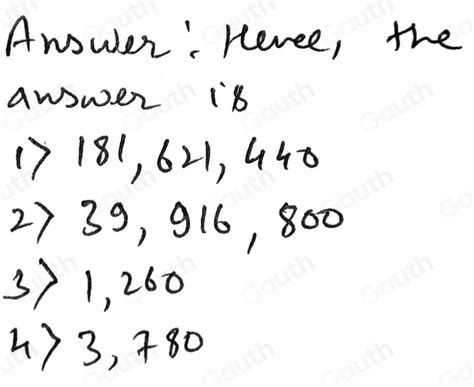 Answer : Hence, the
answer is
1> 181,621,440
2> 39,916,800
3> 1,260
4> 3,780